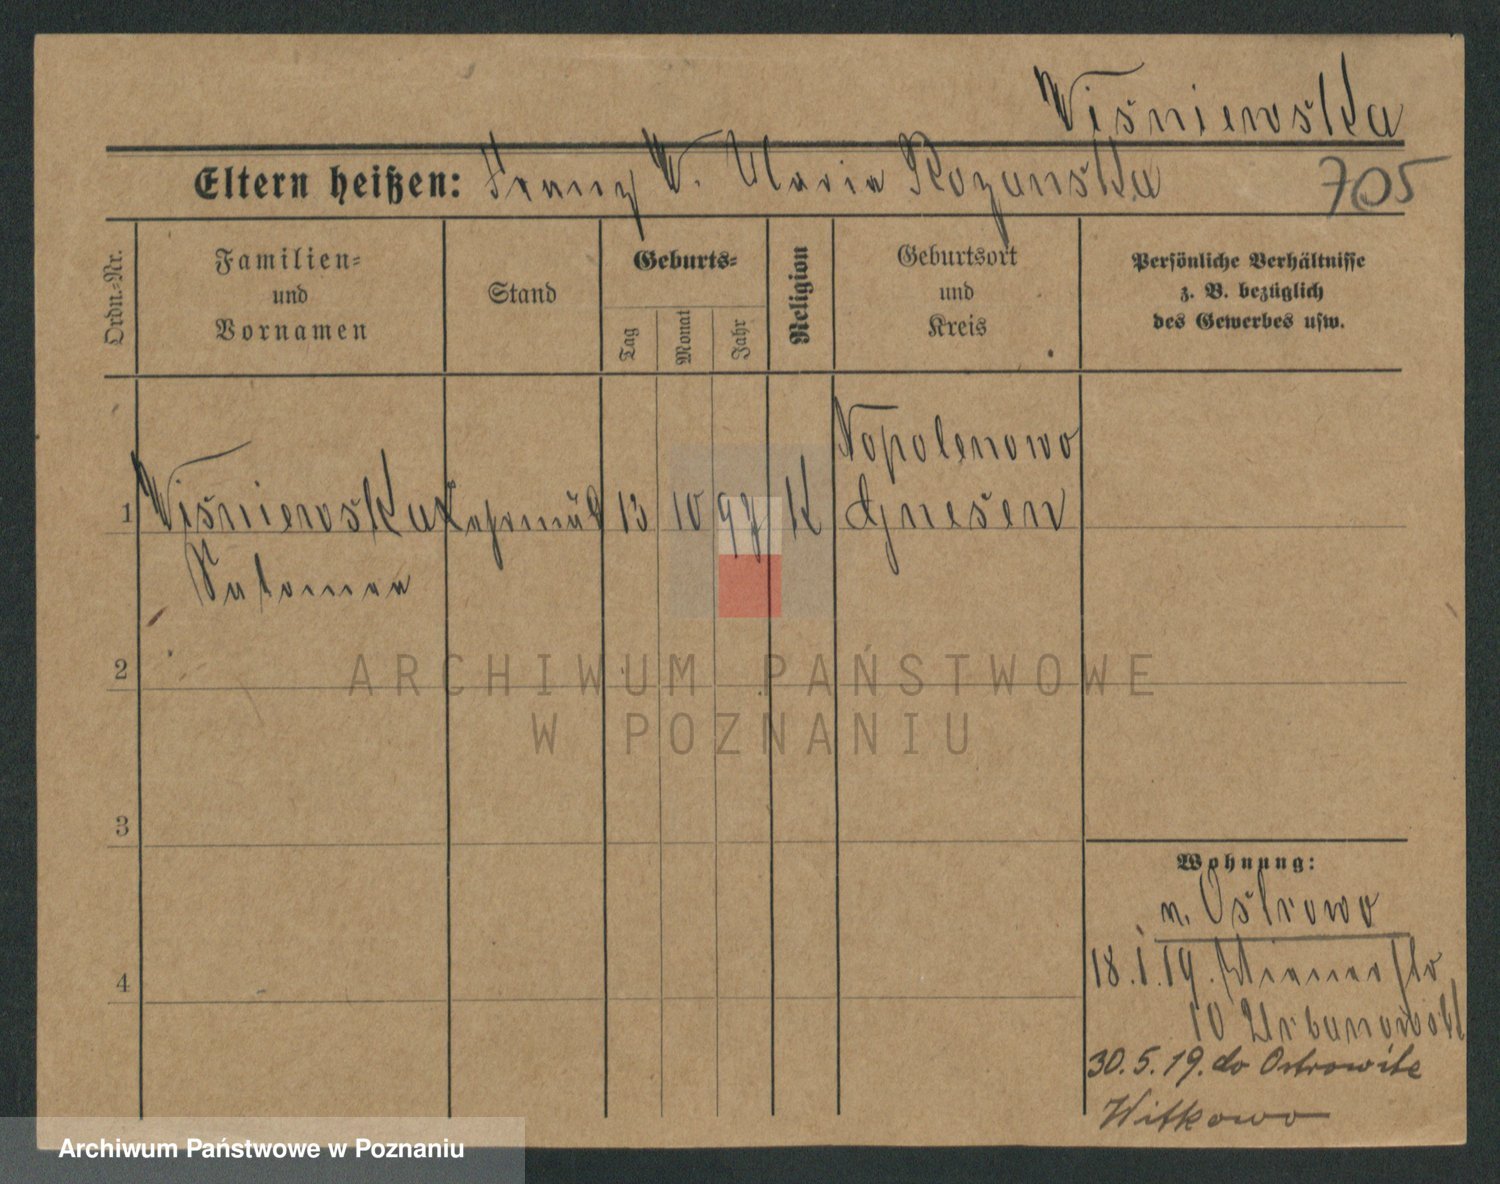 Wiśniewska
Eltern heißen: Franz W. Maria Rozanska
705
Ordn.-Nr.
Familien-
und
Vornamen
Stand
Geburts-
Tag
Monat
Jahr
Religion
Geburtsort
und
Kreis
Persönliche Verhältnisse
z. B. bezüglich
des Gewerbes usw.
Napolenowo
1 Wiśniewska 13 10 97 K Gnesen
Salomea
2
3
4
Wohnung:
n. Ostrowo
18.1.19.
10 Urbanowski
30.5.19. do Ostrowite
Witkowo
ARCHIWUM PAŃSTWOWE
W POZNANIU
Archiwum Państwowe w Poznaniu